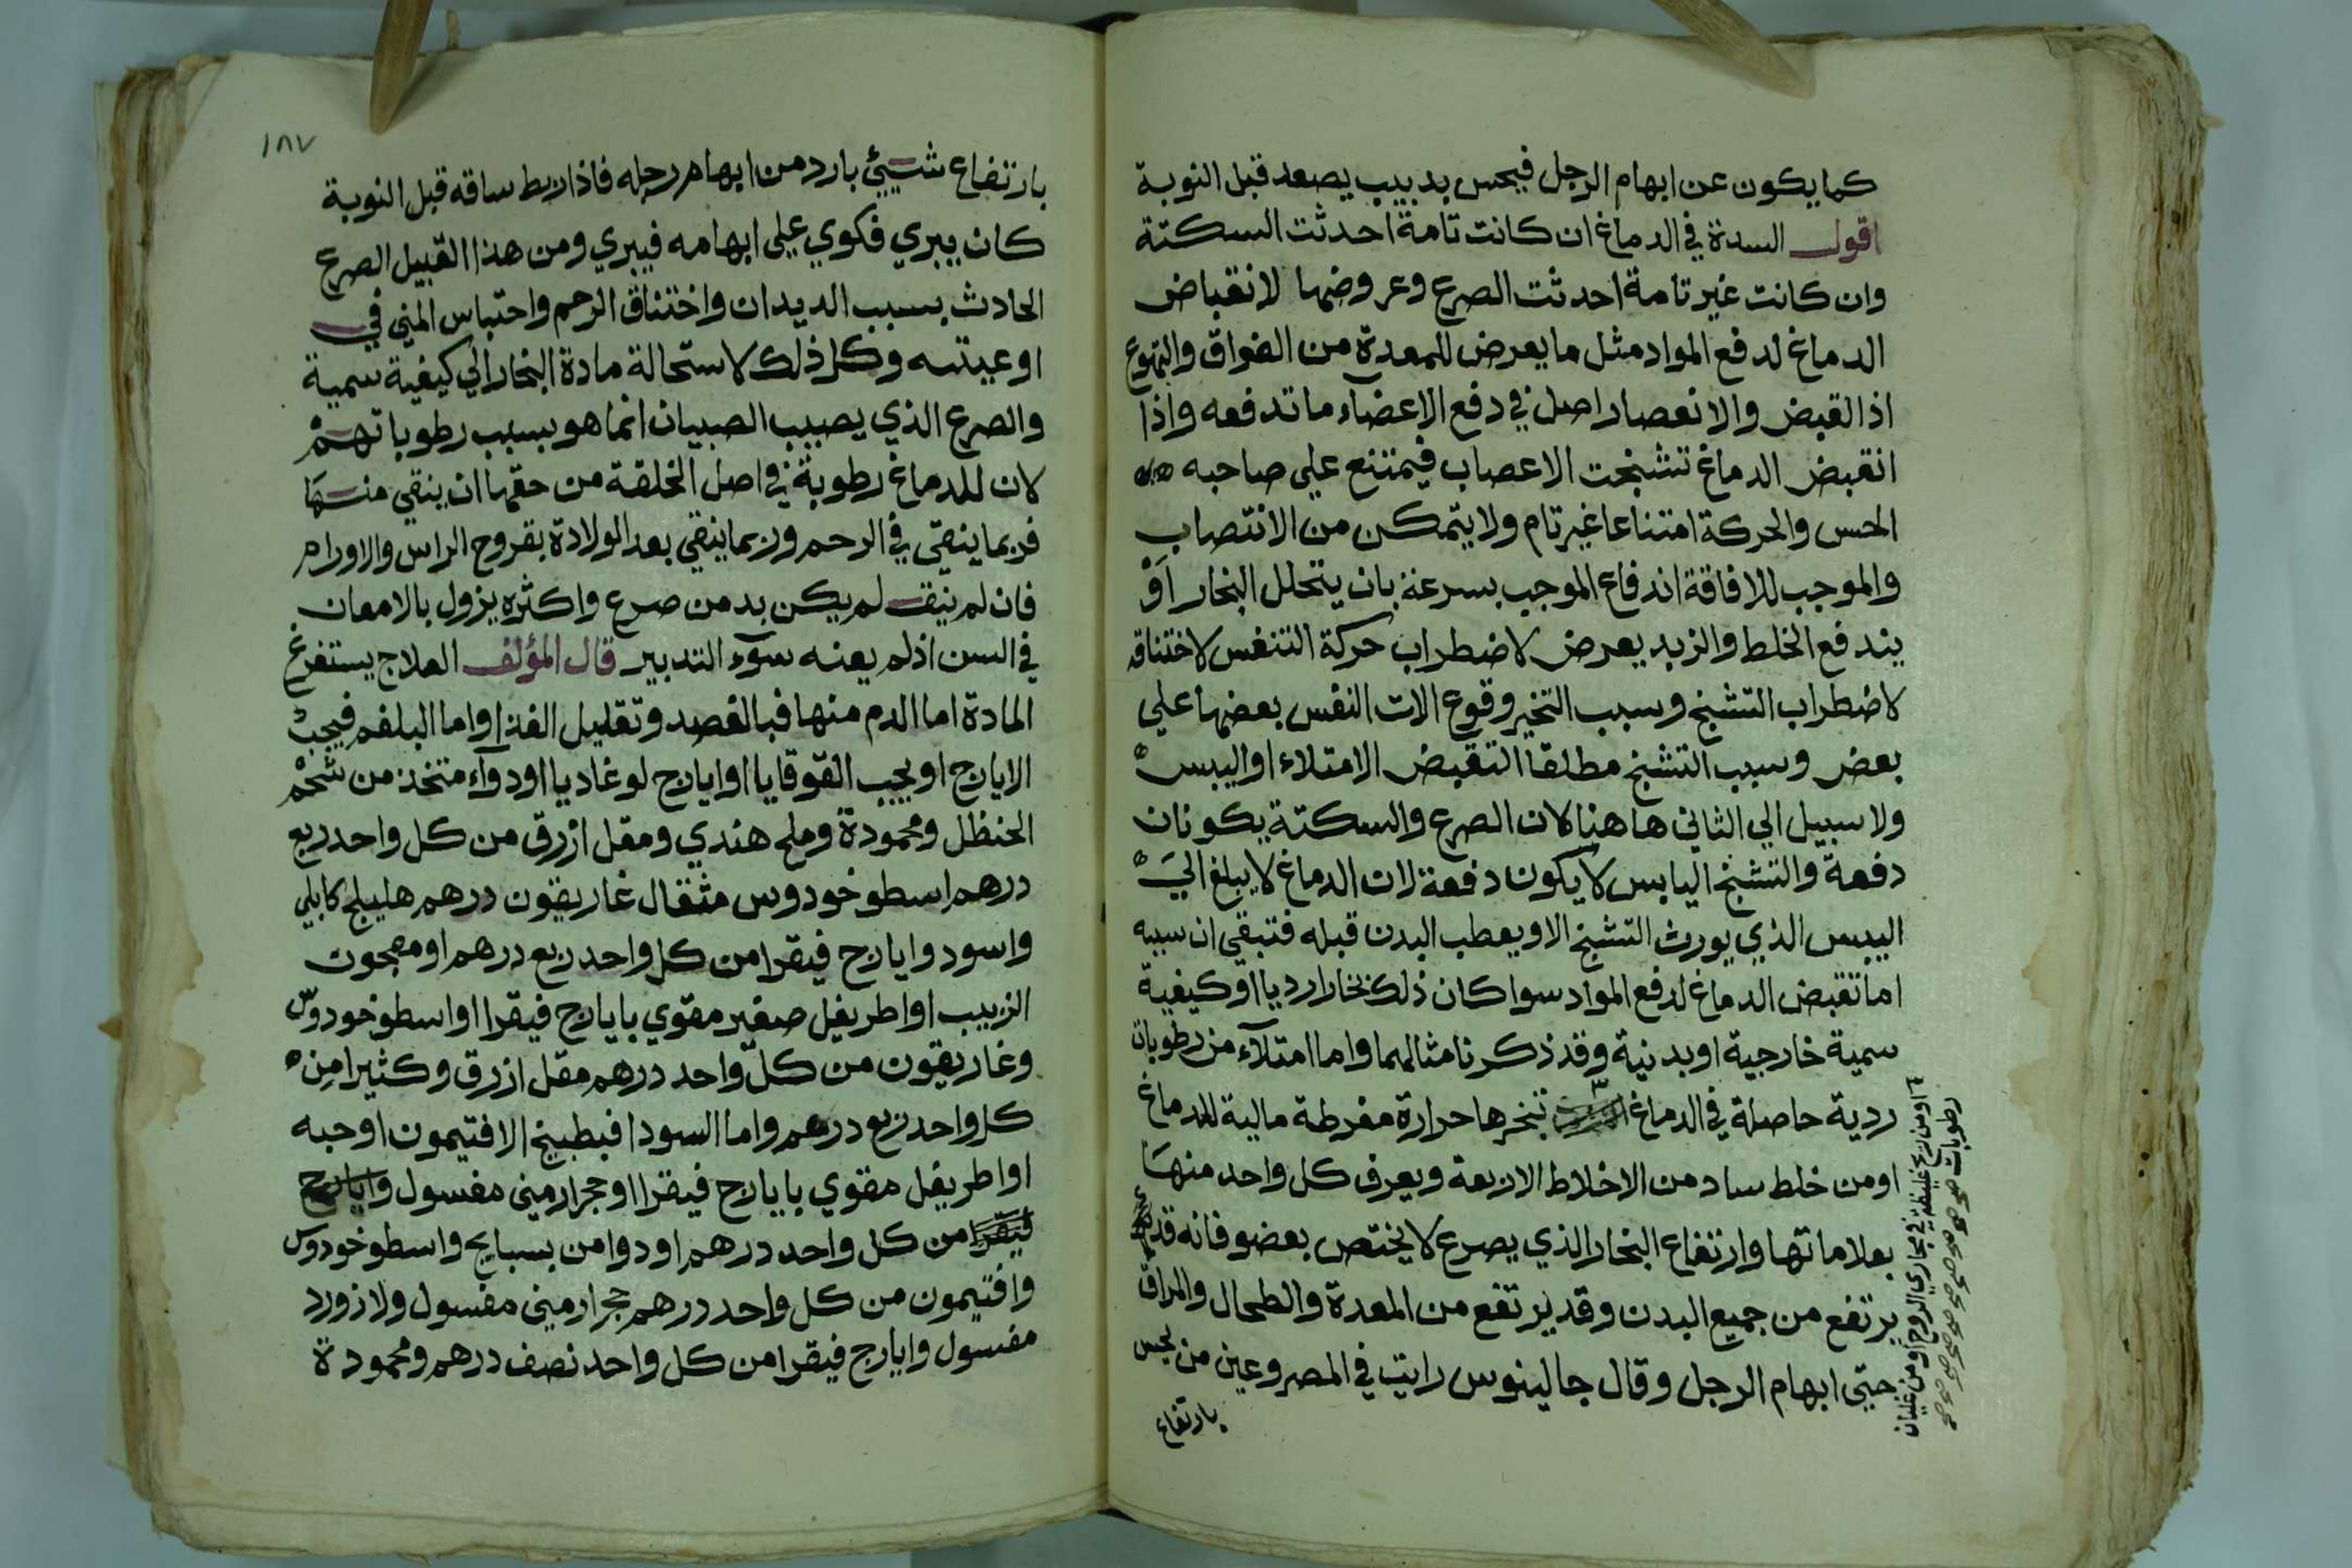 كما يكون عن ابهام الرجل فيحس بدبيب يصعد قبل النوبة
اقول السدة في الدماغ ان كانت تامة احدثت السكتة
وان كانت غير تامة احدثت الصرع وعروضها لانقباض
الدماغ لدفع المواد مثل ما يعرض للمعدة من الفواق والتهوع
اذ القبض والانعصار اصل في دفع الاعضاء ما تدفعه واذا
انقبض الدماغ تشنجت الاعصاب فيمتنع علي صاحبه
الحس والحركة امتناعا غير تام ولا يتمكن من الانتصاب
والموجب للافاقة اندفاع الموجب بسرعة بان يتحلل البخار او
يندفع الخلط والزبد يعرض لاضطراب حركة التنفس لاختناقه
لاضطراب التشنج وسبب التخير وقوع الات النفس بعضها علي
بعض وسبب التشنج مطلقا التقبض الامتلاء او اليبس
ولا سبيل الي الثاني هاهنا لان الصرع والسكتة يكونان
دفعة والتشنج اليابس لا يكون دفعة لان الدماغ لا يبلغ الي
اليبس الذي يورث التشنج الا ويعطب البدن قبله فتبقي ان سببه
اما تقبض الدماغ لدفع المواد سوا كان ذلك بخارا رديا او كيفية
سمية خارجية او بدنية وقد ذكرنا مثالهما واما امتلآء من رطوبات
ردية حاصلة في الدماغ تبخرها حرارة مفرطة مالية للدماغ
او من خلط ساد من الاخلاط الاربعة ويعرف كل واحد منها
بعلاماتها وارتفاع البخار الذي يصرع لا يختص بعضو فانه قد
يرتفع من جميع البدن وقد يرتفع من المعدة والطحال والمراق
حتي ابهام الرجل وقال جالينوس رايت في المصروعين من يحس
بارتفاع
او من ريح غليظة في مجاري الروح او من غليان
رطوبات صح
١٨٧
بارتفاع شيئ بارد من ابهام رجله فاذا ربط ساقه قبل النوبة
كان يبري فكوي علي ابهامه فيبري ومن هذا القبيل الصرع
الحادث بسبب الديدان واختناق الرحم واحتباس المني في
اوعيته وكل ذلك لاستحالة مادة البخار الي كيفية سمية
والصرع الذي يصيب الصبيان انما هو بسبب رطوباتهم
لان للدماغ رطوبة في اصل الخلقة من حقها ان ينقي منها
فربما ينقي في الرحم وربما ينقي بعد الولادة بقروح الراس والاورام
فان لم ينق لم يكن بد من صرع واكثره يزول بالامعان
في السن اذ لم يعنه سوء التدبير قال المؤلف العلاج يستفرغ
المادة اما الدم منها فبالفصد وتقليل الغذا واما البلغم فيجب
الايارج او بحب القوقايا او ايارج لوغاديا او دوآء متخذ من شحم
الحنظل ومحمودة وملح هندي ومقل ازرق من كل واحد ربع
درهم اسطوخودوس مثقال غاريقون درهم هليلج كابلي
واسود وايارج فيقرا من كل واحد ربع درهم او معجون
الزبيب او اطريفل صغير مقوي بايارج فيقرا او اسطوخودوس
وغاريقون من كل واحد درهم مقل ازرق وكثيرا من
كل واحد ربع درهم واما السودا فبطبيخ الافتيمون او حبه
او اطريفل مقوي بايارج فيقرا او حجر ارميني مغسول وايارج
فيقرا من كل واحد درهم او دوا من بسبايج واسطوخودوس
وافتيمون من كل واحد درهم حجر ارميني مغسول ولازورد
مغسول وايارج فيقرا من كل واحد نصف درهم ومحمودة